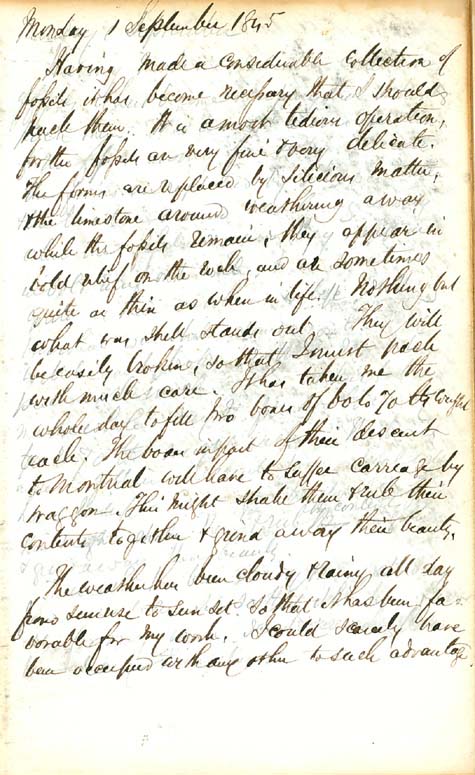 Monday 1 September 1845
Having made a considerable collection of
fossils it has become necessary that I should
pack them. It is a most tedious operation,
for the fossils are very fine & very delicate.
The forms are replaced by silicious matter,
& the limestone around weathering away
while the fossils remain, they appear in
bold relief on the rock, and are sometimes
quite as thin as when in life. Nothing but
what was shell stands out. They will
be easily broken, so that I must pack
with much care. It has taken me the
whole day to fill two boxes of 60 to 70 lbs weight
each. The boxes in part of their descent
to Montreal will have to suffer carriage by
waggon. This might shake them & rub their
contents together & grind away their beauty.
The weather has been cloudy & rainy all day
from sunrise to sunset so that it has been fa-
vorable for my work. I could scarcely have
been occupied with any other to such advantage